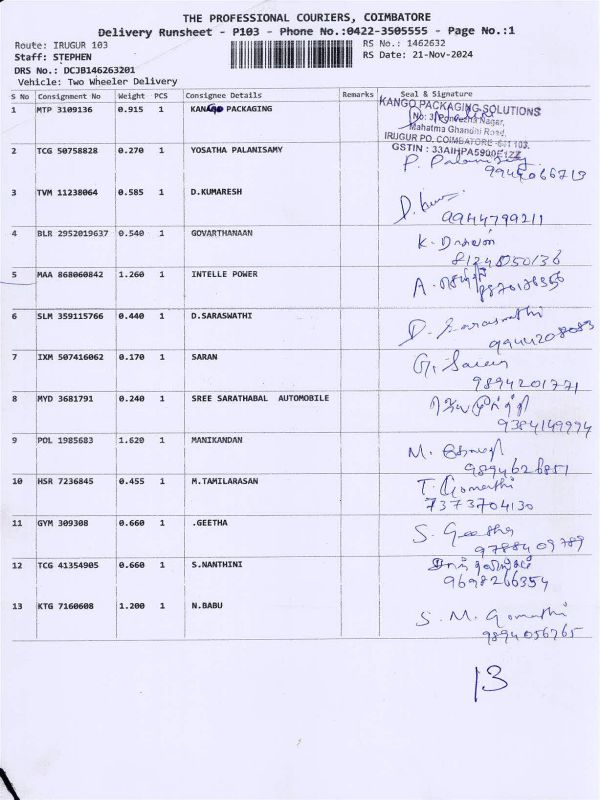 THE PROFESSIONAL COURIERS, COIMBATORE
Delivery Runsheet - P103 - Phone No.:0422-3505555 - Page No.:1
Route: IRUGUR 103 RS No.: 1462632
Staff: STEPHEN RS Date: 21-Nov-2024
DRS No.: DCJB146263201
Vehicle: Two Wheeler Delivery
S No Consignment No Weight PCS Consignee Details Remarks Seal & Signature
1 MTP 3109136 0.915 1 KANGO PACKAGING KANGO PACKAGING SOLUTIONS
Mahatma Ghandhi Road,
IRUGUR PO. COIMBATORE-641 103.
2 TCG 50758828 0.270 1 YOSATHA PALANISAMY P. Palanisamy
9944066713
3 TVM 11238064 0.585 1 D.KUMARESH
9944799211
4 BLR 2952019637 0.540 1 GOVARTHANAAN K.
8124050136
5 MAA 868060842 1.260 1 INTELLE POWER A.
6 SLM 359115766 0.440 1 D.SARASWATHI D. Saraswathi
9944208083
7 IXM 507416062 0.170 1 SARAN G. Saran
9894201771
8 MYD 3681791 0.240 1 SREE SARATHABAL AUTOMOBILE
9384149994
9 POL 1985683 1.620 1 MANIKANDAN M.
9894626851
10 HSR 7236845 0.455 1 M.TAMILARASAN T. Gomathi
7373704130
11 GYM 309308 0.660 1 .GEETHA S. Geetha
9788409789
12 TCG 41354905 0.660 1 S.NANTHINI
9698266354
13 KTG 7160608 1.200 1 N.BABU S. M. Gomathi
9894056765
13